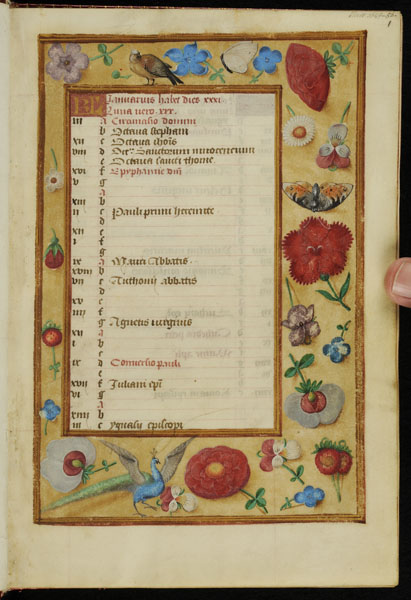 1
KL Januarius habet dies xxxi.
Luna vero .xxx.
iii A Circumcisio domini
b Octava stephani
xi c Octava iohis
viii d Octa Sanctorum innocentum
e Octava sancti thome
xvi f Epyphanie dni
v g
A
xiii b
ii c Pauli primi heremite
d
x e
f
g
A Mauri Abbatis
xviii b
vii c Anthonii abbatis
d
xv e
iiii f
g Agnetis virginis
xii A
i b
c
ix d Conversio pauli
e
xvii f Juliani epi
vi g
A
xiiii b
iii c episcopi